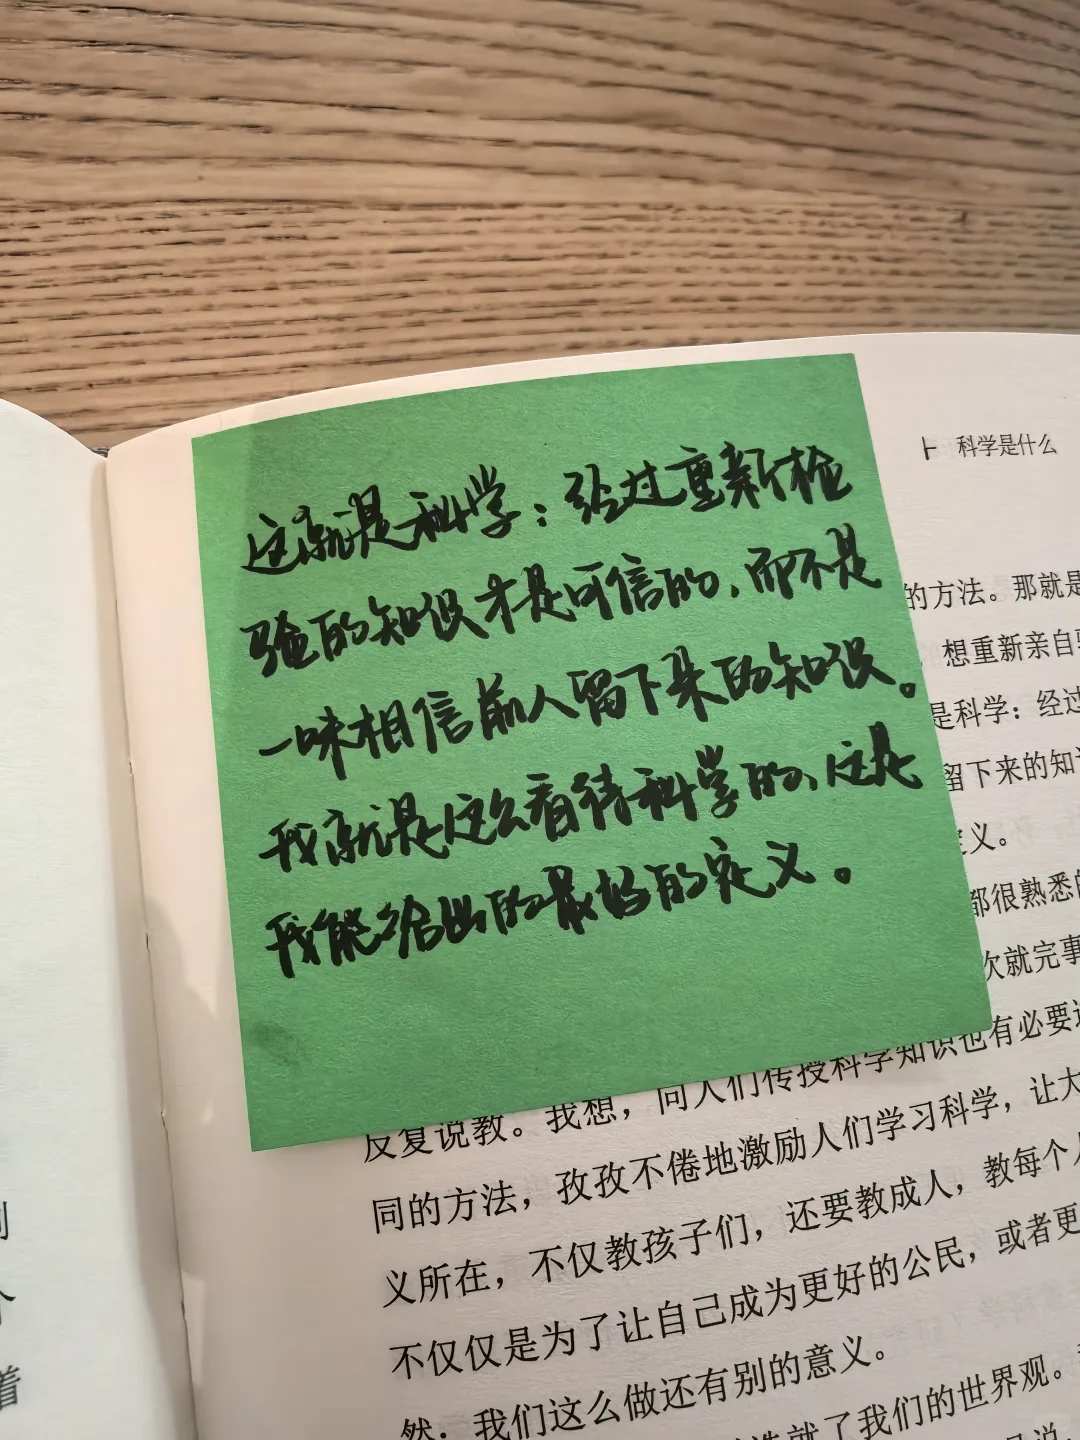 科学是什么
这就是科学：经过重新检
验的知识才是可信的，而不是
一味相信前人留下来的知识。
我就是这么看待科学的，这是
我能给出的最好的定义。
的方法。那就是
想重新亲自
是科学：经过
留下来的知
义。
都很熟悉的
次就完事
反复说教。我想，向人们传授科学知识也有必要
同的方法，孜孜不倦地激励人们学习科学，让大
义所在，不仅教孩子们，还要教成人，教每个
不仅仅是为了让自己成为更好的公民，或者更
然，我们这么做还有别的意义。
就了我们的世界观。
着